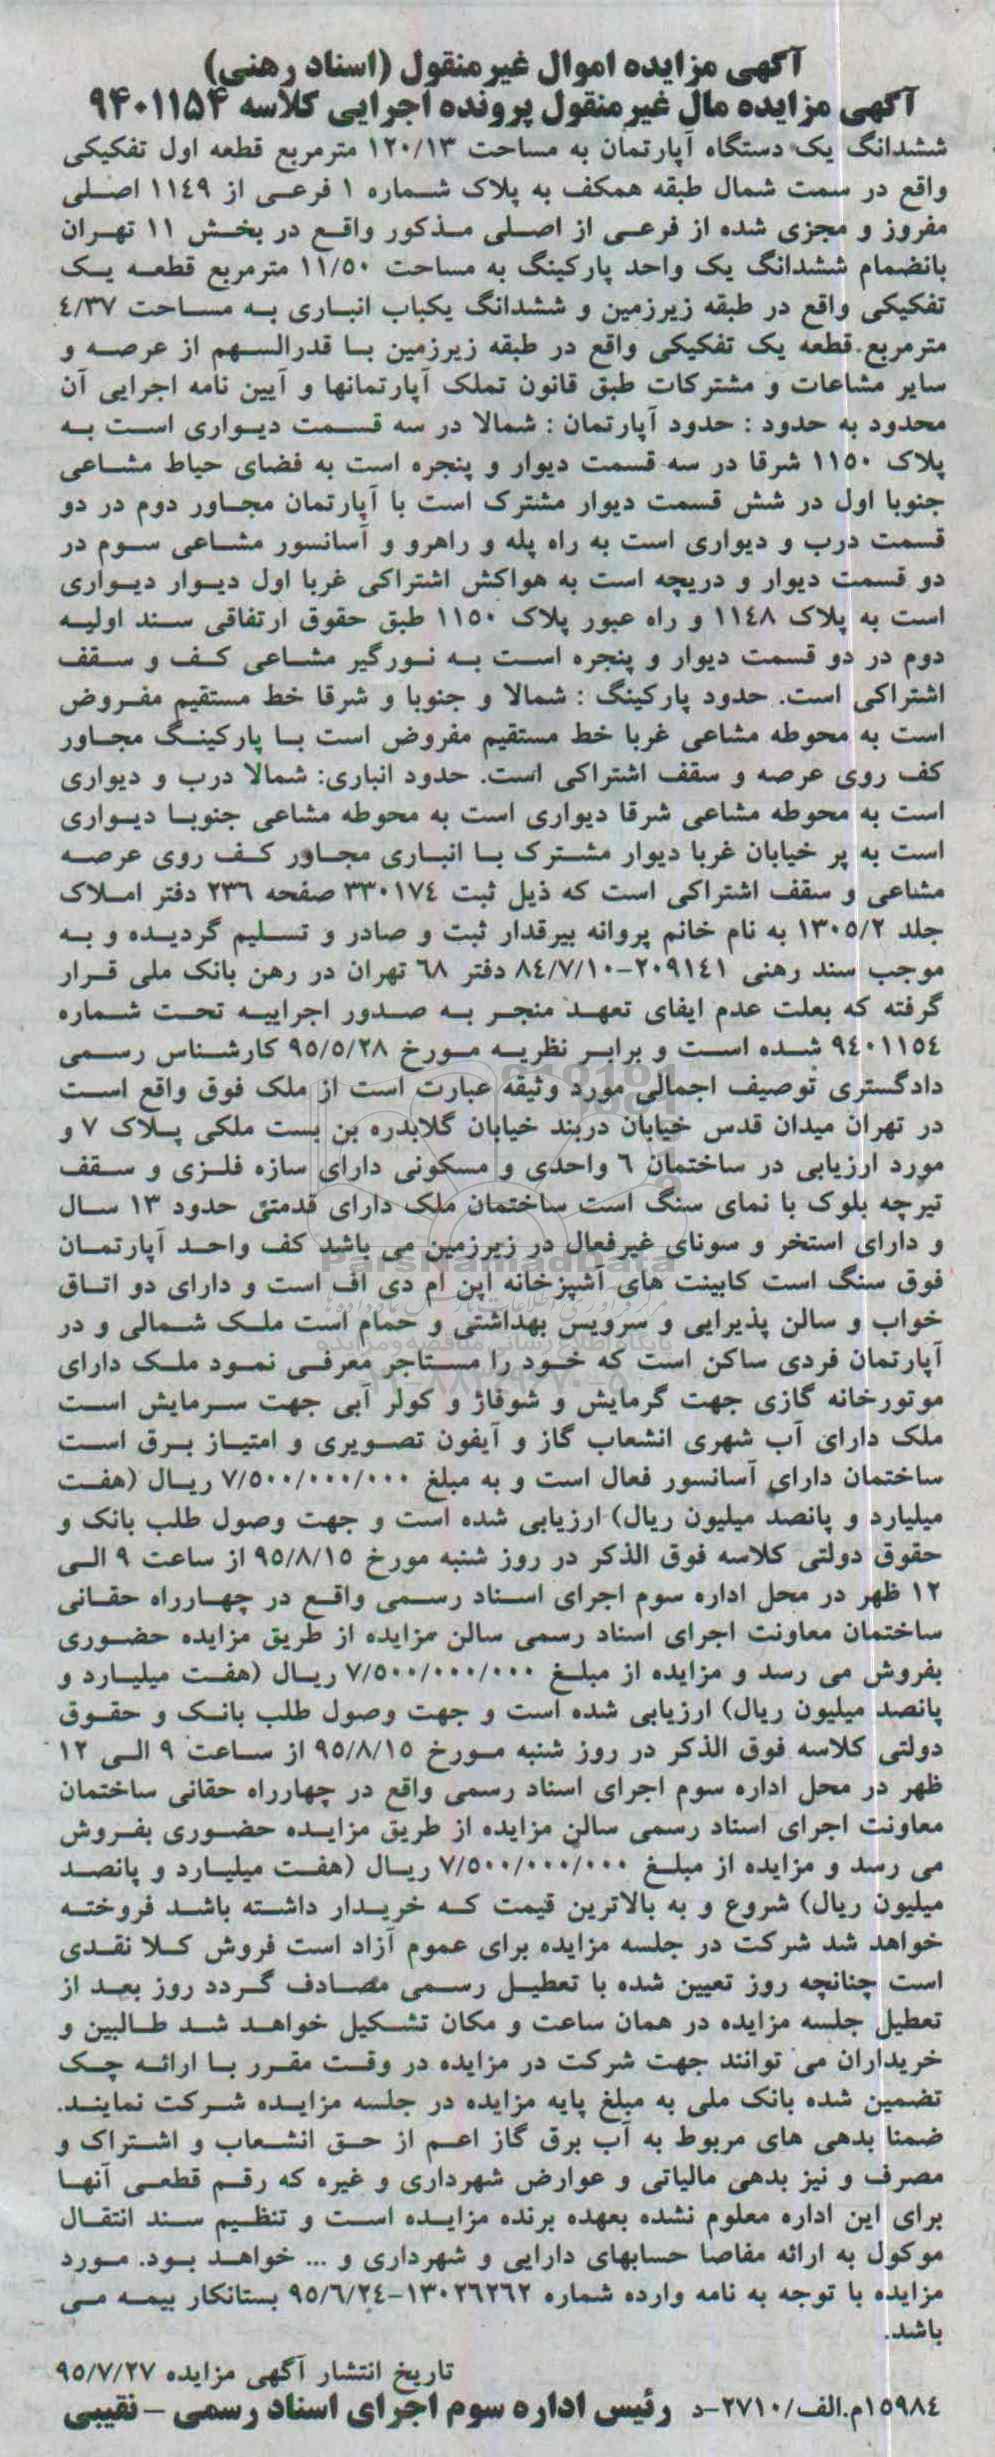 آگهی مزایده اموال غیرمنقول (اسناد رهنی)
آگهی مزایده مال غیرمنقول پرونده اجرایی کلاسه ۹۴۰۱۱۵۴
ششدانگ یک دستگاه آپارتمان به مساحت ۱۲۰/۱۳ مترمربع قطعه اول تفکیکی
واقع در سمت شمال طبقه همکف به پلاک شماره ۱ فرعی از ۱۱۴۹ اصلی
مفروز و مجزی شده از فرعی از اصلی مذکور واقع در بخش ۱۱ تهران
بانضمام ششدانگ یک واحد پارکینگ به مساحت ۱۱/۵۰ مترمربع قطعه یک
تفکیکی واقع در طبقه زیرزمین و ششدانگ یکباب انباری به مساحت ۴/۳۷
مترمربع.قطعه یک تفکیکی واقع در طبقه زیرزمین با قدرالسهم از عرصه و
سایر مشاعات و مشترکات طبق قانون تملک آپارتمانها و آیین نامه اجرایی آن
محدود به حدود : حدود آپارتمان : شمالا در سه قسمت دیواری است به
پلاک ۱۱۵۰ شرقا در سه قسمت دیوار و پنجره است به فضای حیاط مشاعی
جنوبا اول در شش قسمت دیوار مشترک است با آپارتمان مجاور دوم در دو
قسمت درب و دیواری است به راه پله و راهرو و آسانسور مشاعی سوم در
دو قسمت دیوار و دریچه است به هواکش اشتراکی غربا اول دیوار دیواری
است به پلاک ۱۱۴۸ و راه عبور پلاک ۱۱۵۰ طبق حقوق ارتفاقی سند اولیه
دوم در دو قسمت دیوار و پنجره است به نورگیر مشاعی کف و سقف
اشتراکی است. حدود پارکینگ : شمالا و جنوبا و شرقا خط مستقیم مفروض
است به محوطه مشاعی غربا خط مستقیم مفروض است با پارکینگ مجاور
کف روی عرصه و سقف اشتراکی است. حدود انباری: شمالا درب و دیواری
است به محوطه مشاعی شرقا دیواری است به محوطه مشاعی جنوبا دیواری
است به پر خیابان غربا دیوار مشترک با انباری مجاور کف روی عرصه
مشاعی و سقف اشتراکی است که ذیل ثبت ۳۳۰۱۷۴ صفحه ۲۳۶ دفتر املاک
جلد ۱۳۰۵/۲ به نام خانم پروانه بیرقدار ثبت و صادر و تسلیم گردیده و به
موجب سند رهنی ۲۰۹۱۴۱-۸۴/۷/۱۰ دفتر ۶۸ تهران در رهن بانک ملی قرار
گرفته که بعلت عدم ایفای تعهد منجر به صدور اجراییه تحت شماره
۹۴۰۱۱۵۴ شده است و برابر نظریه مورخ ۹۵/۵/۲۸ کارشناس رسمی
دادگستری توصیف اجمالی مورد وثیقه عبارت است از ملک فوق واقع است
در تهران میدان قدس خیابان دربند خیابان گلابدره بن بست ملکی پلاک ۷ و
مورد ارزیابی در ساختمان ۶ واحدی و مسکونی دارای سازه فلزی و سقف
تیرچه بلوک با نمای سنگ است ساختمان ملک دارای قدمتی حدود ۱۳ سال
و دارای استخر و سونای غیرفعال در زیرزمین می باشد کف واحد آپارتمان
فوق سنگ است کابینت های آشپزخانه اپن ام دی اف است و دارای دو اتاق
خواب و سالن پذیرایی و سرویس بهداشتی و حمام است ملک شمالی و در
آپارتمان فردی ساکن است که خود را مستاجر معرفی نمود ملک دارای
موتورخانه گازی جهت گرمایش و شوفاژ و کولر آبی جهت سرمایش است
ملک دارای آب شهری انشعاب گاز و آیفون تصویری و امتیاز برق است
ساختمان دارای آسانسور فعال است و به مبلغ ۷/۵۰۰/۰۰۰/۰۰۰ ریال (هفت
میلیارد و پانصد میلیون ریال) ارزیابی شده است و جهت وصول طلب بانک و
حقوق دولتی کلاسه فوق الذکر در روز شنبه مورخ ۹۵/۸/۱۵ از ساعت ۹ الی
۱۲ ظهر در محل اداره سوم اجرای اسناد رسمی واقع در چهارراه حقانی
ساختمان معاونت اجرای اسناد رسمی سالن مزایده از طریق مزایده حضوری
بفروش می رسد و مزایده از مبلغ ۷/۵۰۰/۰۰۰/۰۰۰ ریال (هفت میلیارد و
پانصد میلیون ریال) ارزیابی شده است و جهت وصول طلب بانک و حقوق
دولتی کلاسه فوق الذکر در روز شنبه مورخ ۹۵/۸/۱۵ از ساعت ۹ الی ۱۲
ظهر در محل اداره سوم اجرای اسناد رسمی واقع در چهارراه حقانی ساختمان
معاونت اجرای اسناد رسمی سالن مزایده از طریق مزایده حضوری بفروش
می رسد و مزایده از مبلغ ۷/۵۰۰/۰۰۰/۰۰۰ ریال (هفت میلیارد و پانصد
میلیون ریال) شروع و به بالاترین قیمت که خریدار داشته باشد فروخته
خواهد شد شرکت در جلسه مزایده برای عموم آزاد است فروش کلا نقدی
است چنانچه روز تعیین شده با تعطیل رسمی مصادف گردد روز بعد از
تعطیل جلسه مزایده در همان ساعت و مکان تشکیل خواهد شد طالبین و
خریداران می توانند جهت شرکت در مزایده در وقت مقرر با ارائه چک
تضمین شده بانک ملی به مبلغ پایه مزایده در جلسه مزایده شرکت نمایند.
ضمنا بدهی های مربوط به آب برق گاز اعم از حق انشعاب و اشتراک و
مصرف و نیز بدهی مالیاتی و عوارض شهرداری و غیره که رقم قطعی آنها
برای این اداره معلوم نشده بعهده برنده مزایده است و تنظیم سند انتقال
موکول به ارائه مفاصا حسابهای دارایی و شهرداری و ... خواهد بود. مورد
مزایده با توجه به نامه وارده شماره ۱۳۰۲۶۲۶۲-۹۵/۶/۲۴ بستانکار بیمه می
باشد.
تاریخ انتشار آگهی مزایده ۹۵/۷/۲۷
۱۵۹۸۴م.الف/۲۷۱۰-د رئیس اداره سوم اجرای اسناد رسمی – نقیبی
ParsNamadData
پایگاه اطلاع رسانی مناقصه و مزایده